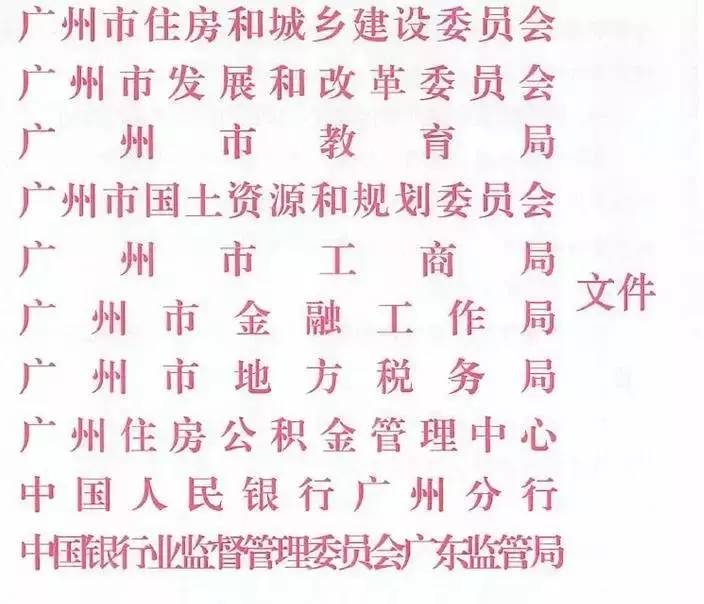 广州市住房和城乡建设委员会
广州市发展和改革委员会
广州市教育局
广州市国土资源和规划委员会
广州市工商局
广州市金融工作局
广州市地方税务局
广州住房公积金管理中心
中国人民银行广州分行
中国银行业监督管理委员会广东监管局
文件